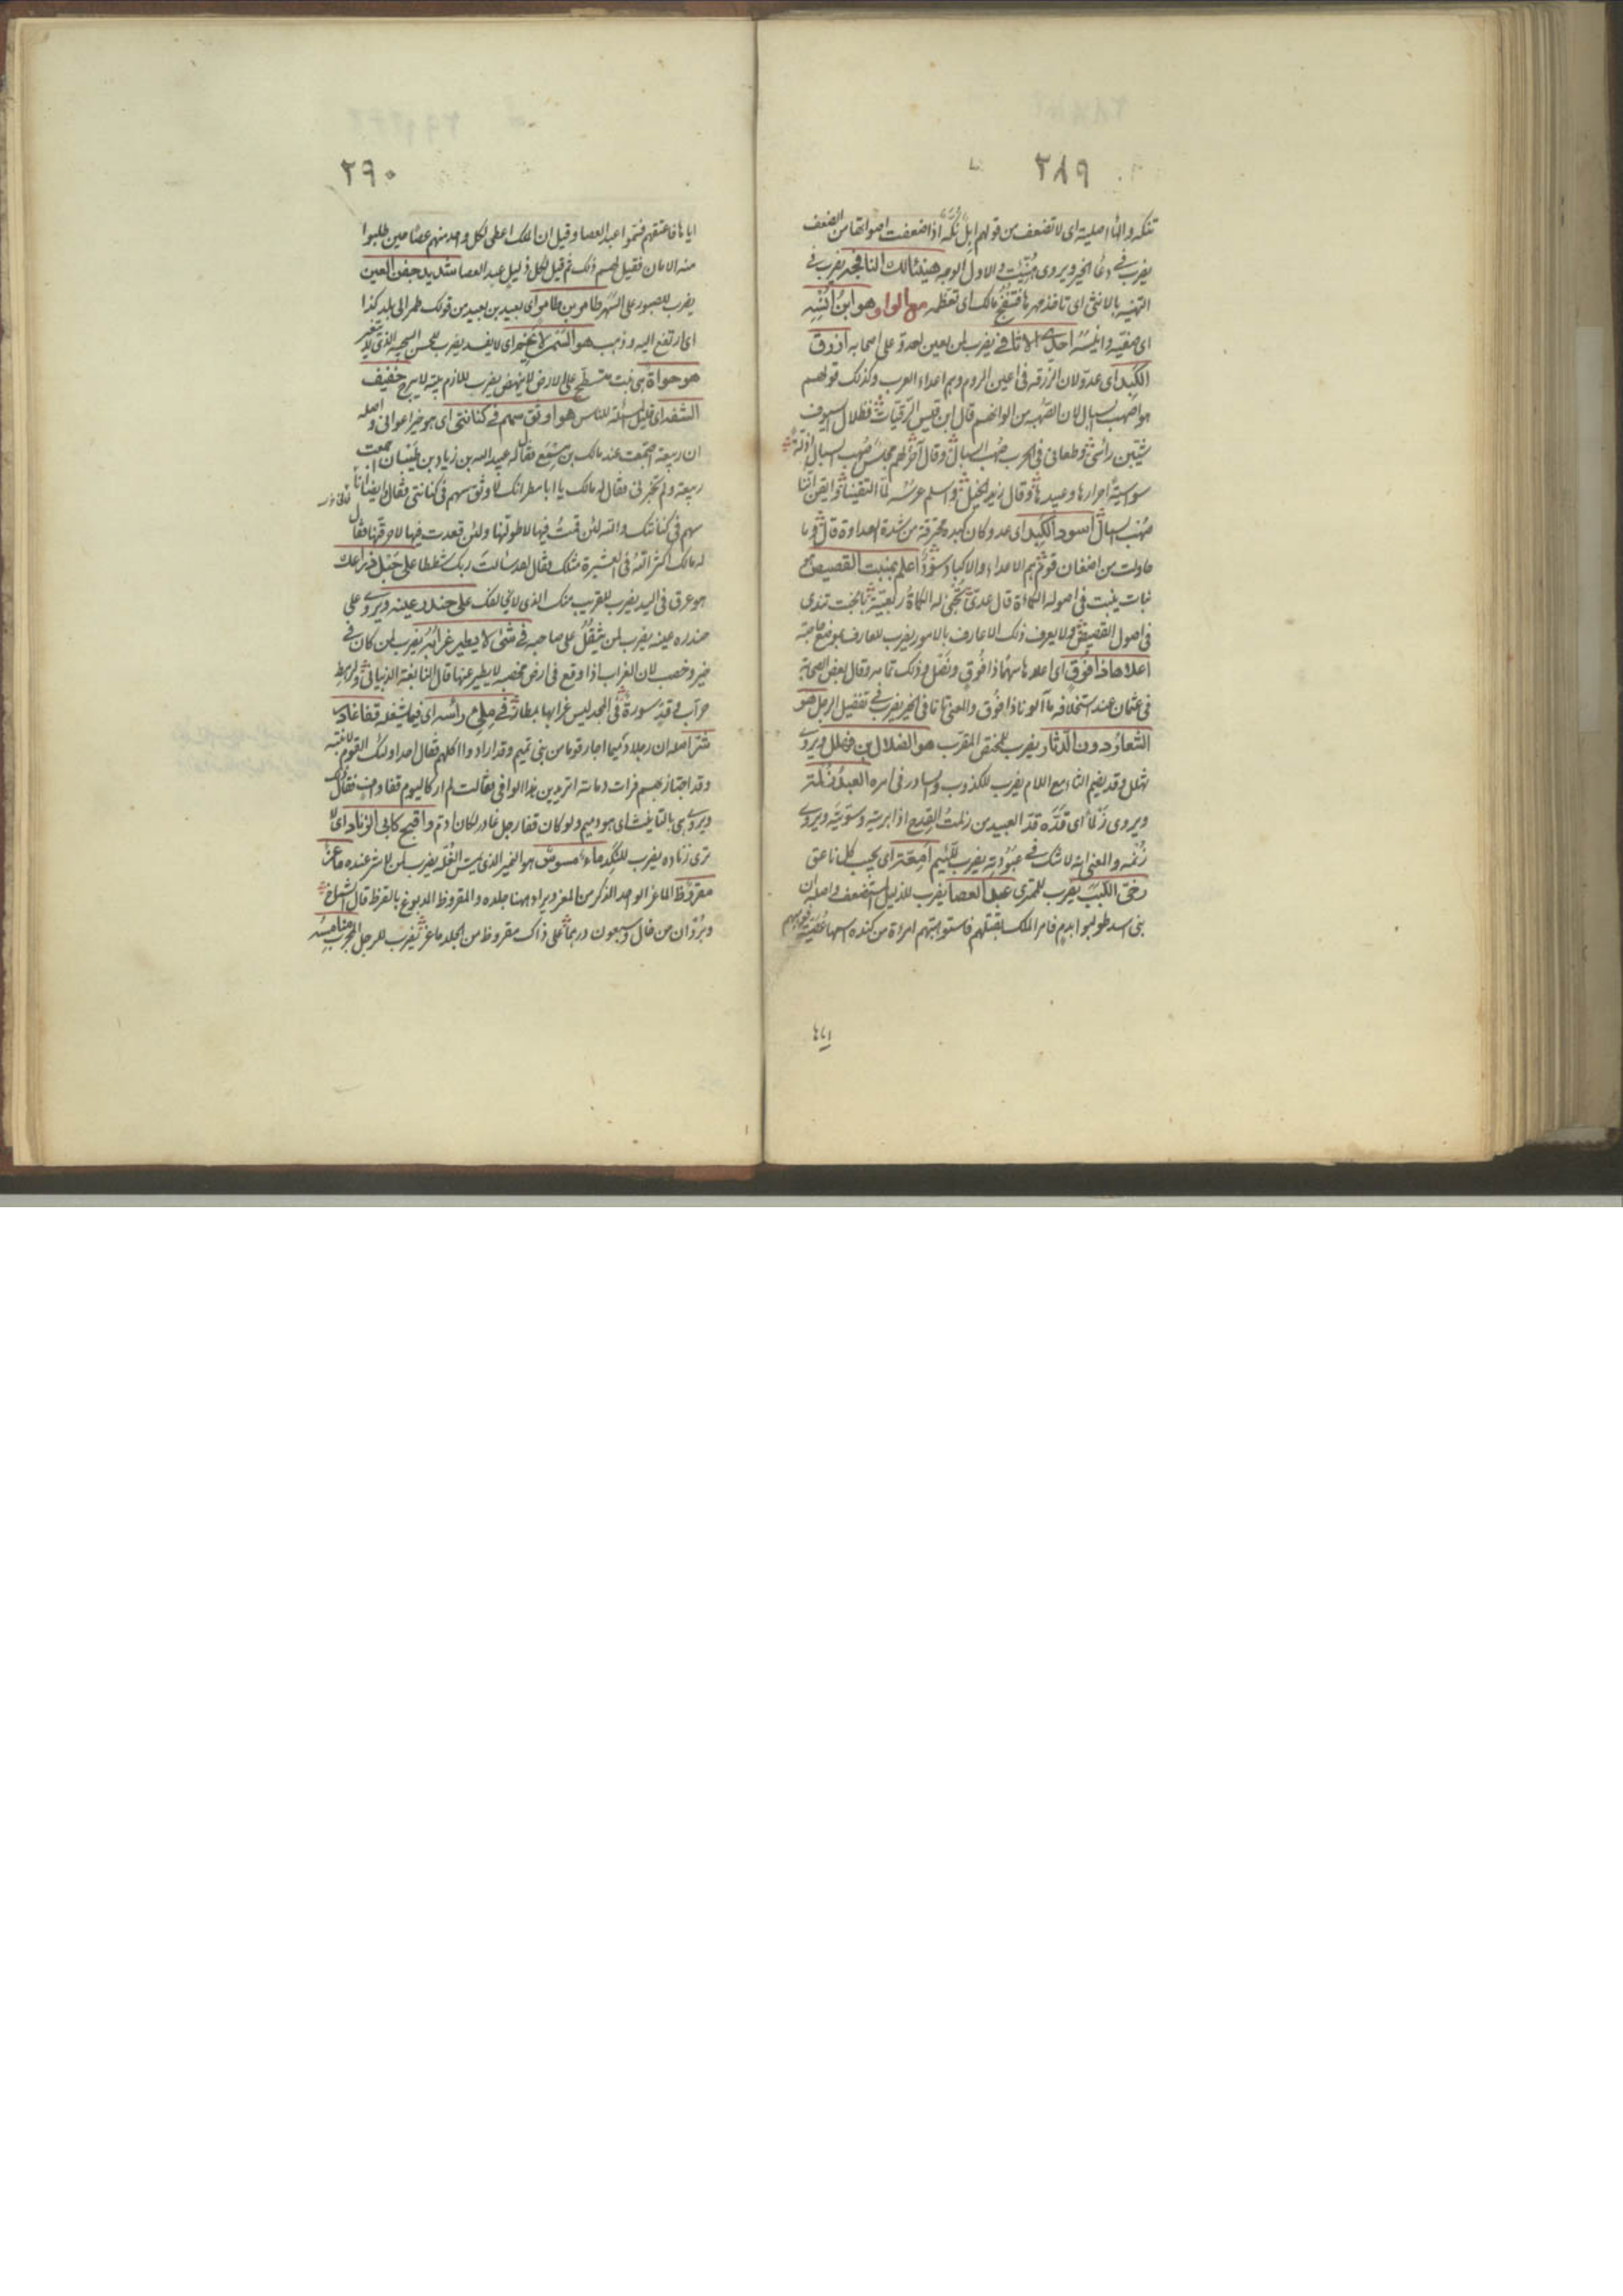 ٢٨٩
تنكه والهاء اصلية اى لا تضعف من قولهم ابل نُكَّه اذا ضعفت اصواتها من الضعف
يضرب فى دعاء الخير ويروى هُنِّيتَ والاول الوجه هنيئا لك النافجه يضرب فى
التهنية بالانثى اى تاخذ مهرها فتنفج مالك اى تعظمه مع الواو هو ابنُ اُنسِه
اى صفيّه وانيسه احدى الاثافى يضرب لمن يعين العدو على اصحابه ازرق
الكَبِد اى عدوّ لان الزرقه فى اعين الروم وهم اعداء العرب وكذلك قولهم
هو اصهب السبال لان الصهبه من الوانهم قال ابن قيس الرقيات فظلال السيوف
شيّبن رأسى وطعانى فى الحرب صُهب السبال وقال آخر لهم مجلسٌ صُهب السبال اذلة
سواسيةٌ احرارها وعبيدها وقال زيد الخيل واسلم عرسه لما التقينا وايقن اننا
صُهب السبال اسود الكبد اى عدو وكان كبده محترقة من شدة العداوة قال وما
حاولت من اضغان قومٍ هم الاعداء والاكباد سُودٌ اعلم بمنبت القصيص هو
نبات ينبت فى اصوله الكمأة قال عدىّ تجنى له الكمأة ربعيّة بالخبت تندى
فى اصول القصيص ولا يعرف ذلك الا عارف بالامور يضرب للعارف بموضع حاجته
اعلاها ذا فُوقٍ اى اعلاها سهمًا ذا فوقٍ ونَصْلٍ وذلك تمامه وقال بعض الصحابة
فى عثمان عند استخلافه ما آلونا ذا فُوق والمعنى تامًا فى الخير يضرب فى تفضيل الرجل هو
الشعار دون الدثار يضرب للمختص المقرّب هو الضلال بن فهلل ويروى
ثهلل وقد يضم الثاء مع اللام يضرب للكذوب والسادر فى امره العبدُ زَلمةً
ويروى زَلمًا اى قَدُّه قدّ العبيد من زلمتُ القِدح اذا بريته وسوّيته ويروى
زُنمه والمعنى انه لا شك فى عبودته يضرب للّئيم اِمّعة اى يجيب كل ناعق
عبد العصا يضرب للذليل المستضعف واصله ان
بنى اسد طولبوا بدم فامر الملك بقتلهم فاستوهبتهم امراة من كنده اسمها عُصَيّة فوهبهم
اياها
٢٩٠
اياها فاعتقهم فسُمّوا عبيد العصا وقيل ان الملك اعطى لكل واحد منهم عصًا حين طلبوا
منه الامان فقيل لهم ذلك ثم قيل لكل ذليل عبد العصا شديد جفن العين
يضرب للصبور على السّهر طامر بن طامر اى بعيد بن بعيد من قولك طمر الى بلد كذا
اى ارتفع اليه وذهب هو السّمن لا يَخِمُ اى لا يفسد يضرب للحسن السجيّه الذى لا يتغير
هو حواة هى نبت متسطّح على الارض لا ينهض يضرب للازم بيته لا يبرح خفيف
الشفه اى قليل المسئلة للناس هو اوثق سهم فى كنانتى اى هو خير اعوانى واصله
ان ربيعة اجتمعت عند مالك بن مسمع فقال له عبيد الله بن زياد بن ظبيان اجمعت
ربيعة ولم تخبرنى فقال له مالك يا ابا مطر انك لاوثق سهم فى كنانتى فقال ايضًا انا
سهم فى كنانتك والله لئن قمتُ فيها لاطولنّها ولئن قعدت فيها لاخرقنّها فقال
له مالك اكثر الله فى العشيرة مثلك فقال لقد سألتَ ربك شططا على حَبْل ذراعك
هو عرق فى اليد يضرب للقريب منك الذى لا يخالفك على حندر عينه ويروى على
حندره عينه يضرب لمن يثقل على صاحبه فى شئٍ لا يطير غرابُه يضرب لمن كان فى
خير وخصب لان الغراب اذا وقع فى ارض مخصبه لا يطير عنها قال النابغة الذبيانى ولرهط
حرّاب وقدّ سورةٌ فى المجد ليس غرابها بمطار فى ملئ رأسه اى فيما يشغله قفا غادر
شرّ اصله ان رجلا دميما اجار قوما من بنى تميم وقد ارادوا اكلهم فقال احد اولئك القوم لابنته
وقد اجتاز بهم فرات دمامته اتريدين هذا الوافى فقالت لم ار كاليوم قفا وافٍ فقال
ويروى هى بالتانيث اى هو دميم ولو كان قفا رجل غادر لكان ادمّ واقبح كابى الزناد اى لا
ترى زناده يضرب للنكد ماء مسوس هو النمير الذى يمسّ الغُلّة يضرب لمن لا شر عنده ماعز
مقروظ الماعز الواحد الذكر من المعز ويراد ههنا جلده والمقروظ المدبوغ بالقرظ قال الشماخ
وبُردان من خال وسبعون درهما على ذاك مقروظ من الجلد ماعز يضرب للرجل المجرب